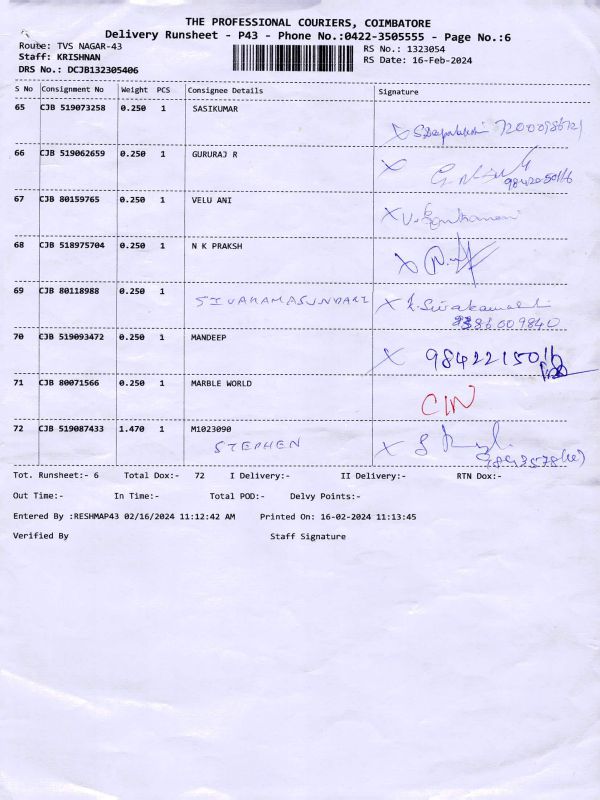 THE PROFESSIONAL COURIERS, COIMBATORE
Delivery Runsheet - P43 - Phone No.:0422-3505555 - Page No.:6
Route: TVS NAGAR-43 RS No.: 1323054
Staff: KRISHNAN RS Date: 16-Feb-2024
DRS No.: DCJB132305406
S No Consignment No Weight PCS Consignee Details Signature
65 CJB 519073258 0.250 1 SASIKUMAR
66 CJB 519062659 0.250 1 GURURAJ R
67 CJB 80159765 0.250 1 VELU ANI
68 CJB 518975704 0.250 1 N K PRAKSH
69 CJB 80118988 0.250 1
SIVAKAMASUNDARI
70 CJB 519093472 0.250 1 MANDEEP
9842215016
71 CJB 80071566 0.250 1 MARBLE WORLD
CIN
72 CJB 519087433 1.470 1 M1023090
STEPHEN
Tot. Runsheet:- 6 Total Dox:- 72 I Delivery:- II Delivery:- RTN Dox:-
Out Time:- In Time:- Total POD:- Delvy Points:-
Entered By :RESHMAP43 02/16/2024 11:12:42 AM Printed On: 16-02-2024 11:13:45
Verified By Staff Signature